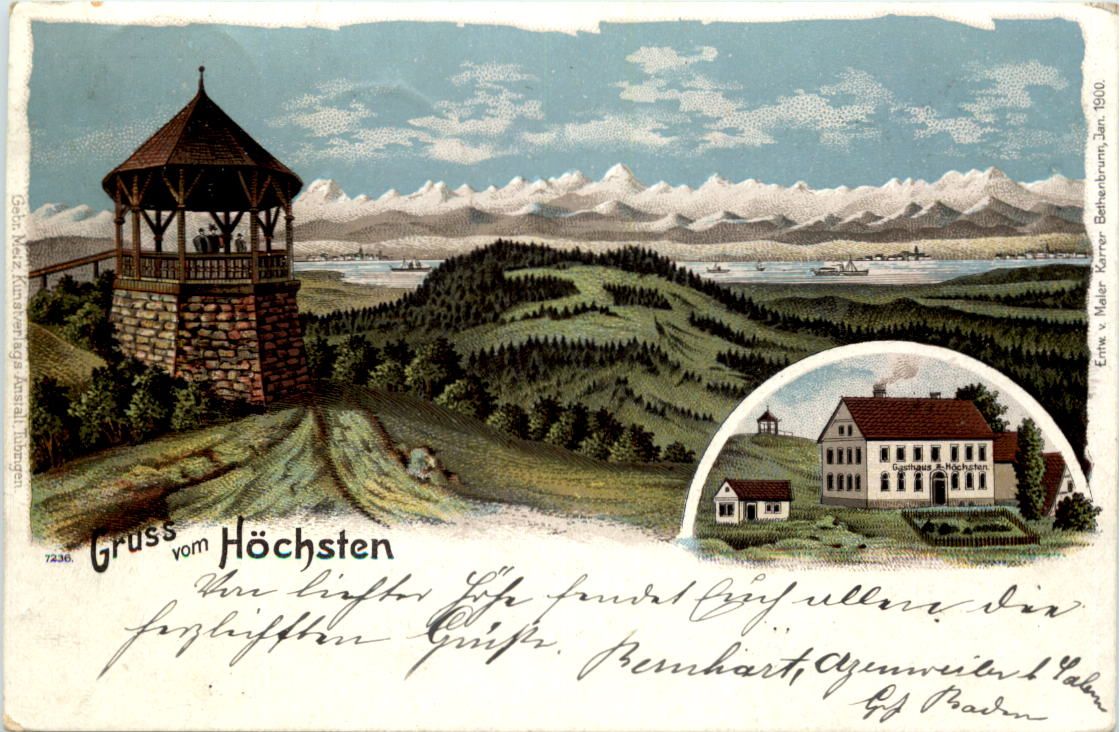 Gebr. Metz, Kunstverlags-Anstalt, Tübingen.
Entw. v. Maler Karrer Bethenbrunn, Jan. 1900.
Gasthaus z. Höchsten.
7236.
Gruss vom Höchsten
Von lichter Höhe sendet Euch allen die
herzlichsten Grüße.
Bernhart, Azenweiler b Salem
Baden